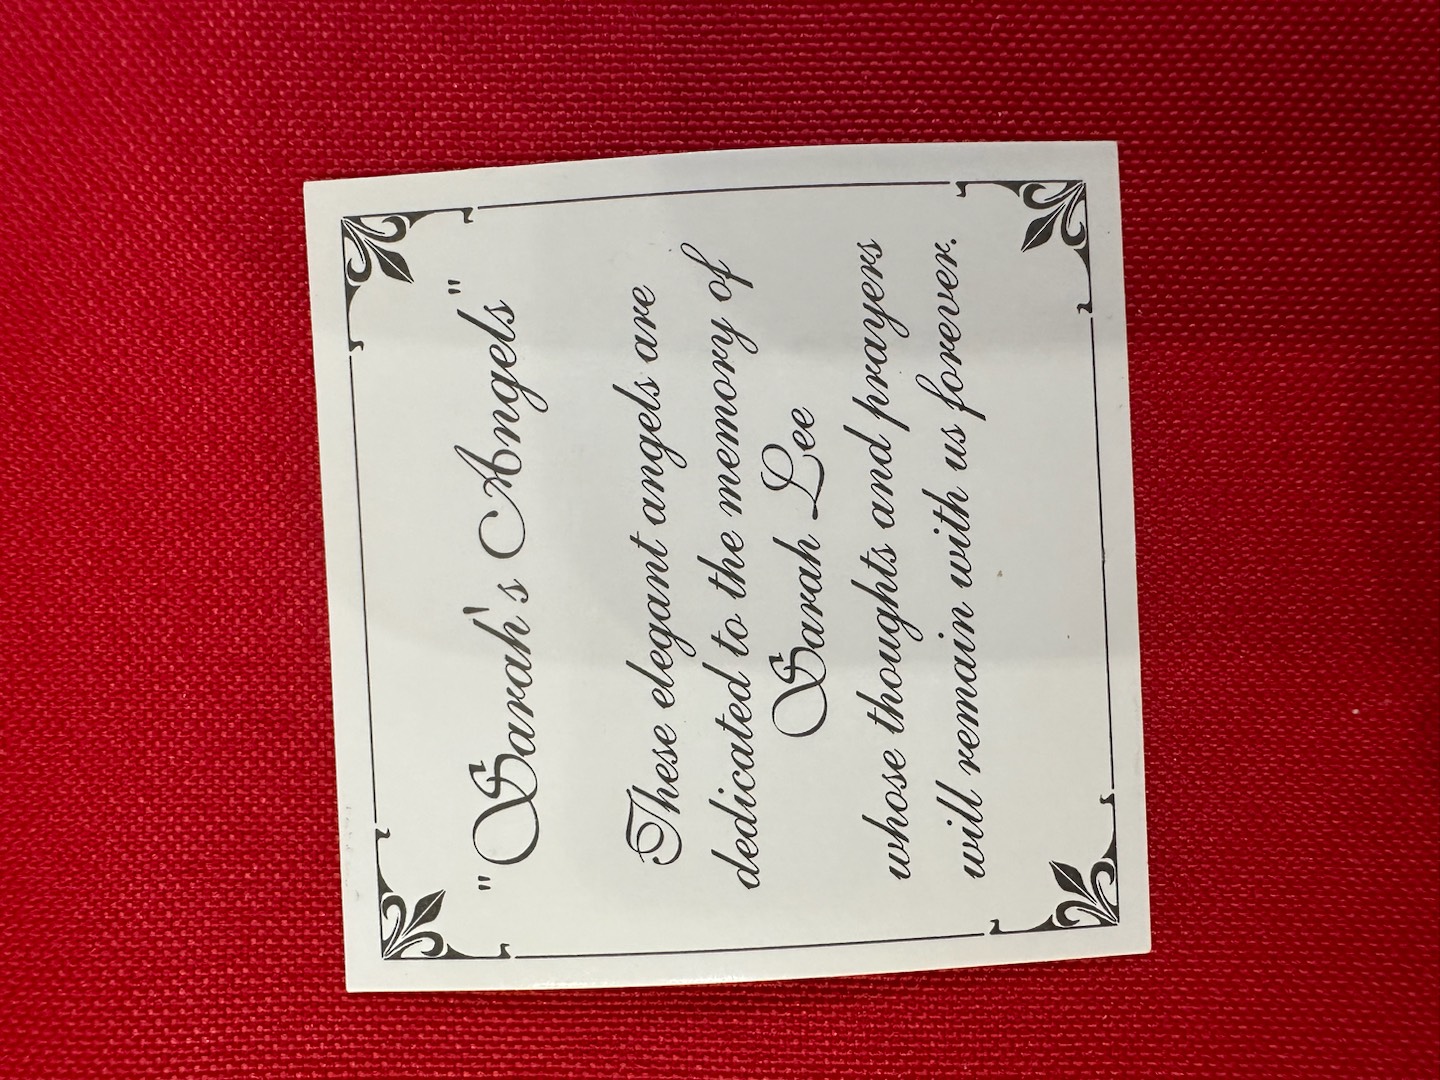 "Sarah's Angels"
These elegant angels are
dedicated to the memory of
Sarah Lee
whose thoughts and prayers
will remain with us forever.